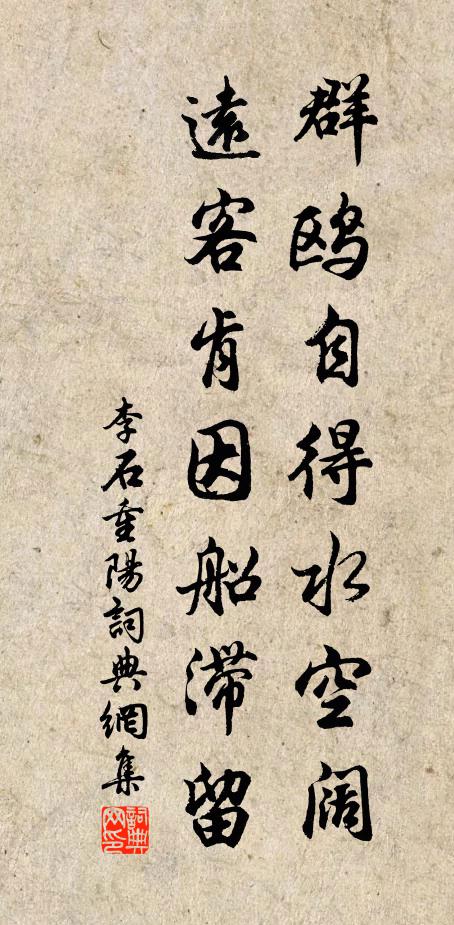 群鸥自得水空阔
遠客肯因船滞留
李石重陽詞典網集
詞典网印